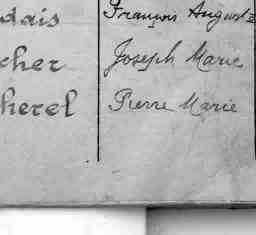 dais François August
cher Joseph Marie
herel Pierre Marie